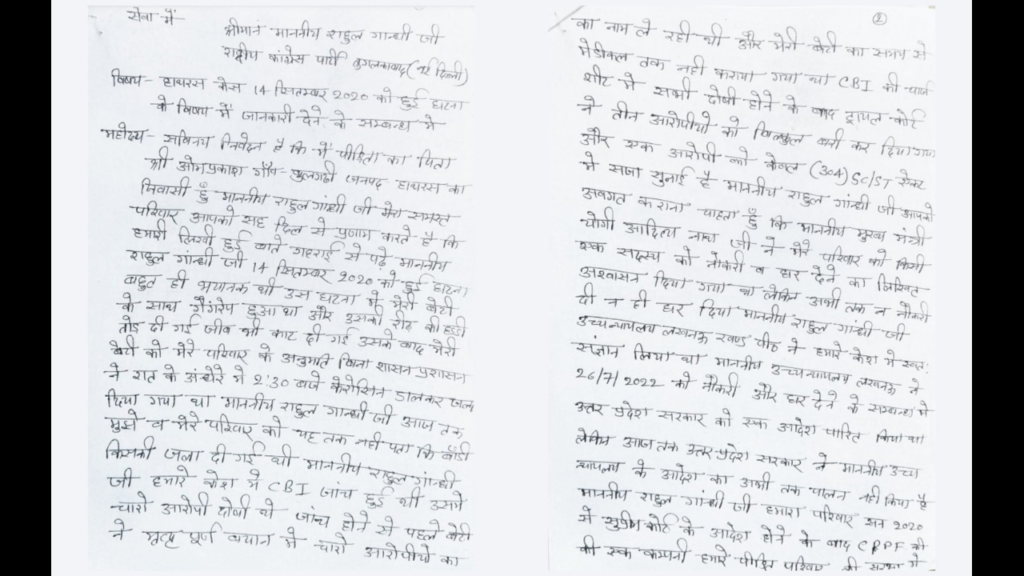 सेवा में
श्रीमान माननीय राहुल गान्धी जी
राष्ट्रीय कांग्रेस पार्टी (नई दिल्ली)
विषय- हाथरस केस 14 सितम्बर 2020 को हुई घटना
के विषय में जानकारी देने के सम्बन्ध में
महोदय- सविनय निवेदन है कि मैं पीड़िता का पिता
श्री ओमप्रकाश जनपद हाथरस का
निवासी हूँ माननीय राहुल गांधी जी मेरा समस्त
परिवार आपको सह दिल से प्रणाम करते है कि
हमारी लिखी हुई बाते गहराई से पढ़े माननीय
राहुल गांन्धी जी 14 सितम्बर 2020 को हुई घटना
बहुत ही भयानक थी उस घटना में मेरी बेटी
के साथ गैंगरेप हुआ था और उसकी रीड की हड्डी
तोड़ दी गई जीव भी काट दी गई उसके बाद मेरी
बेटी को मेरे परिवार के अनुमति बिना शासन प्रशासन
ने रात के अंन्धेरे मे 2:30 बजे केरोसिन डालकर जला
दिया गया था माननीय राहुल गान्धी जी आज तक
मुझे व मेरे परिवार को यह तक नही पता कि बॉडी
किसकी जला दी गई थी माननीय राहुल गांन्धी
जी हमारे केश मे CBI जांच हुई थी उसमे
चारो आरोपी दोषी थे जांच होने से पहले बेटी
ने मृत्यु पूर्ण बयान मे चारो आरोपीयो का
2
का नाम ले रही थी और मेरी बेटी का समय से
मेडीकल तक नही कराया गया था CBI की चार्ज
शीट मे सभी दोषी होने के बाद ट्रायल कोर्ट
ने तीन आरोपीयो को बिल्कुल बरी कर दिया गया
और एक आरोपी को केवल (304) SC/ST ऐक्ट
मे सजा सुनाई है माननीय राहुल गांन्धी जी आपको
अवगत कराना चाहता हूँ कि माननीय मुख्य मंत्री
योगी आदित्य नाथ जी ने मेरे परिवार को किसी
एक सदस्य को नौकरी व घर देने का लिखित
अश्वासन दिया गया था लेकिन अभी तक न नौकरी
दी न ही घर दिया माननीय राहुल गांन्धी जी
उच्चन्यायालय लखनऊ खण्ड पीठ ने हमारे केश मे स्वतः
संज्ञान लिया था माननीय उच्चन्यायालय लखनऊ ने
26/7/2022 को नौकरी और घर देने के सम्बन्ध मे
उत्तर प्रदेश सरकार को एक आदेश पारित किया था
लेकिन आज तक उत्तर प्रदेश सरकार ने माननीय उच्च
न्यायालय के आदेश का अभी तक पालन नही किया है
माननीय राहुल गांन्धी जी हमारा परिवार सन 2020
मे सुप्रीम कोर्ट के आदेश होने के बाद CRPF की
की एक कम्पनी हमारे पीडित परिवार की सुरक्षा मे